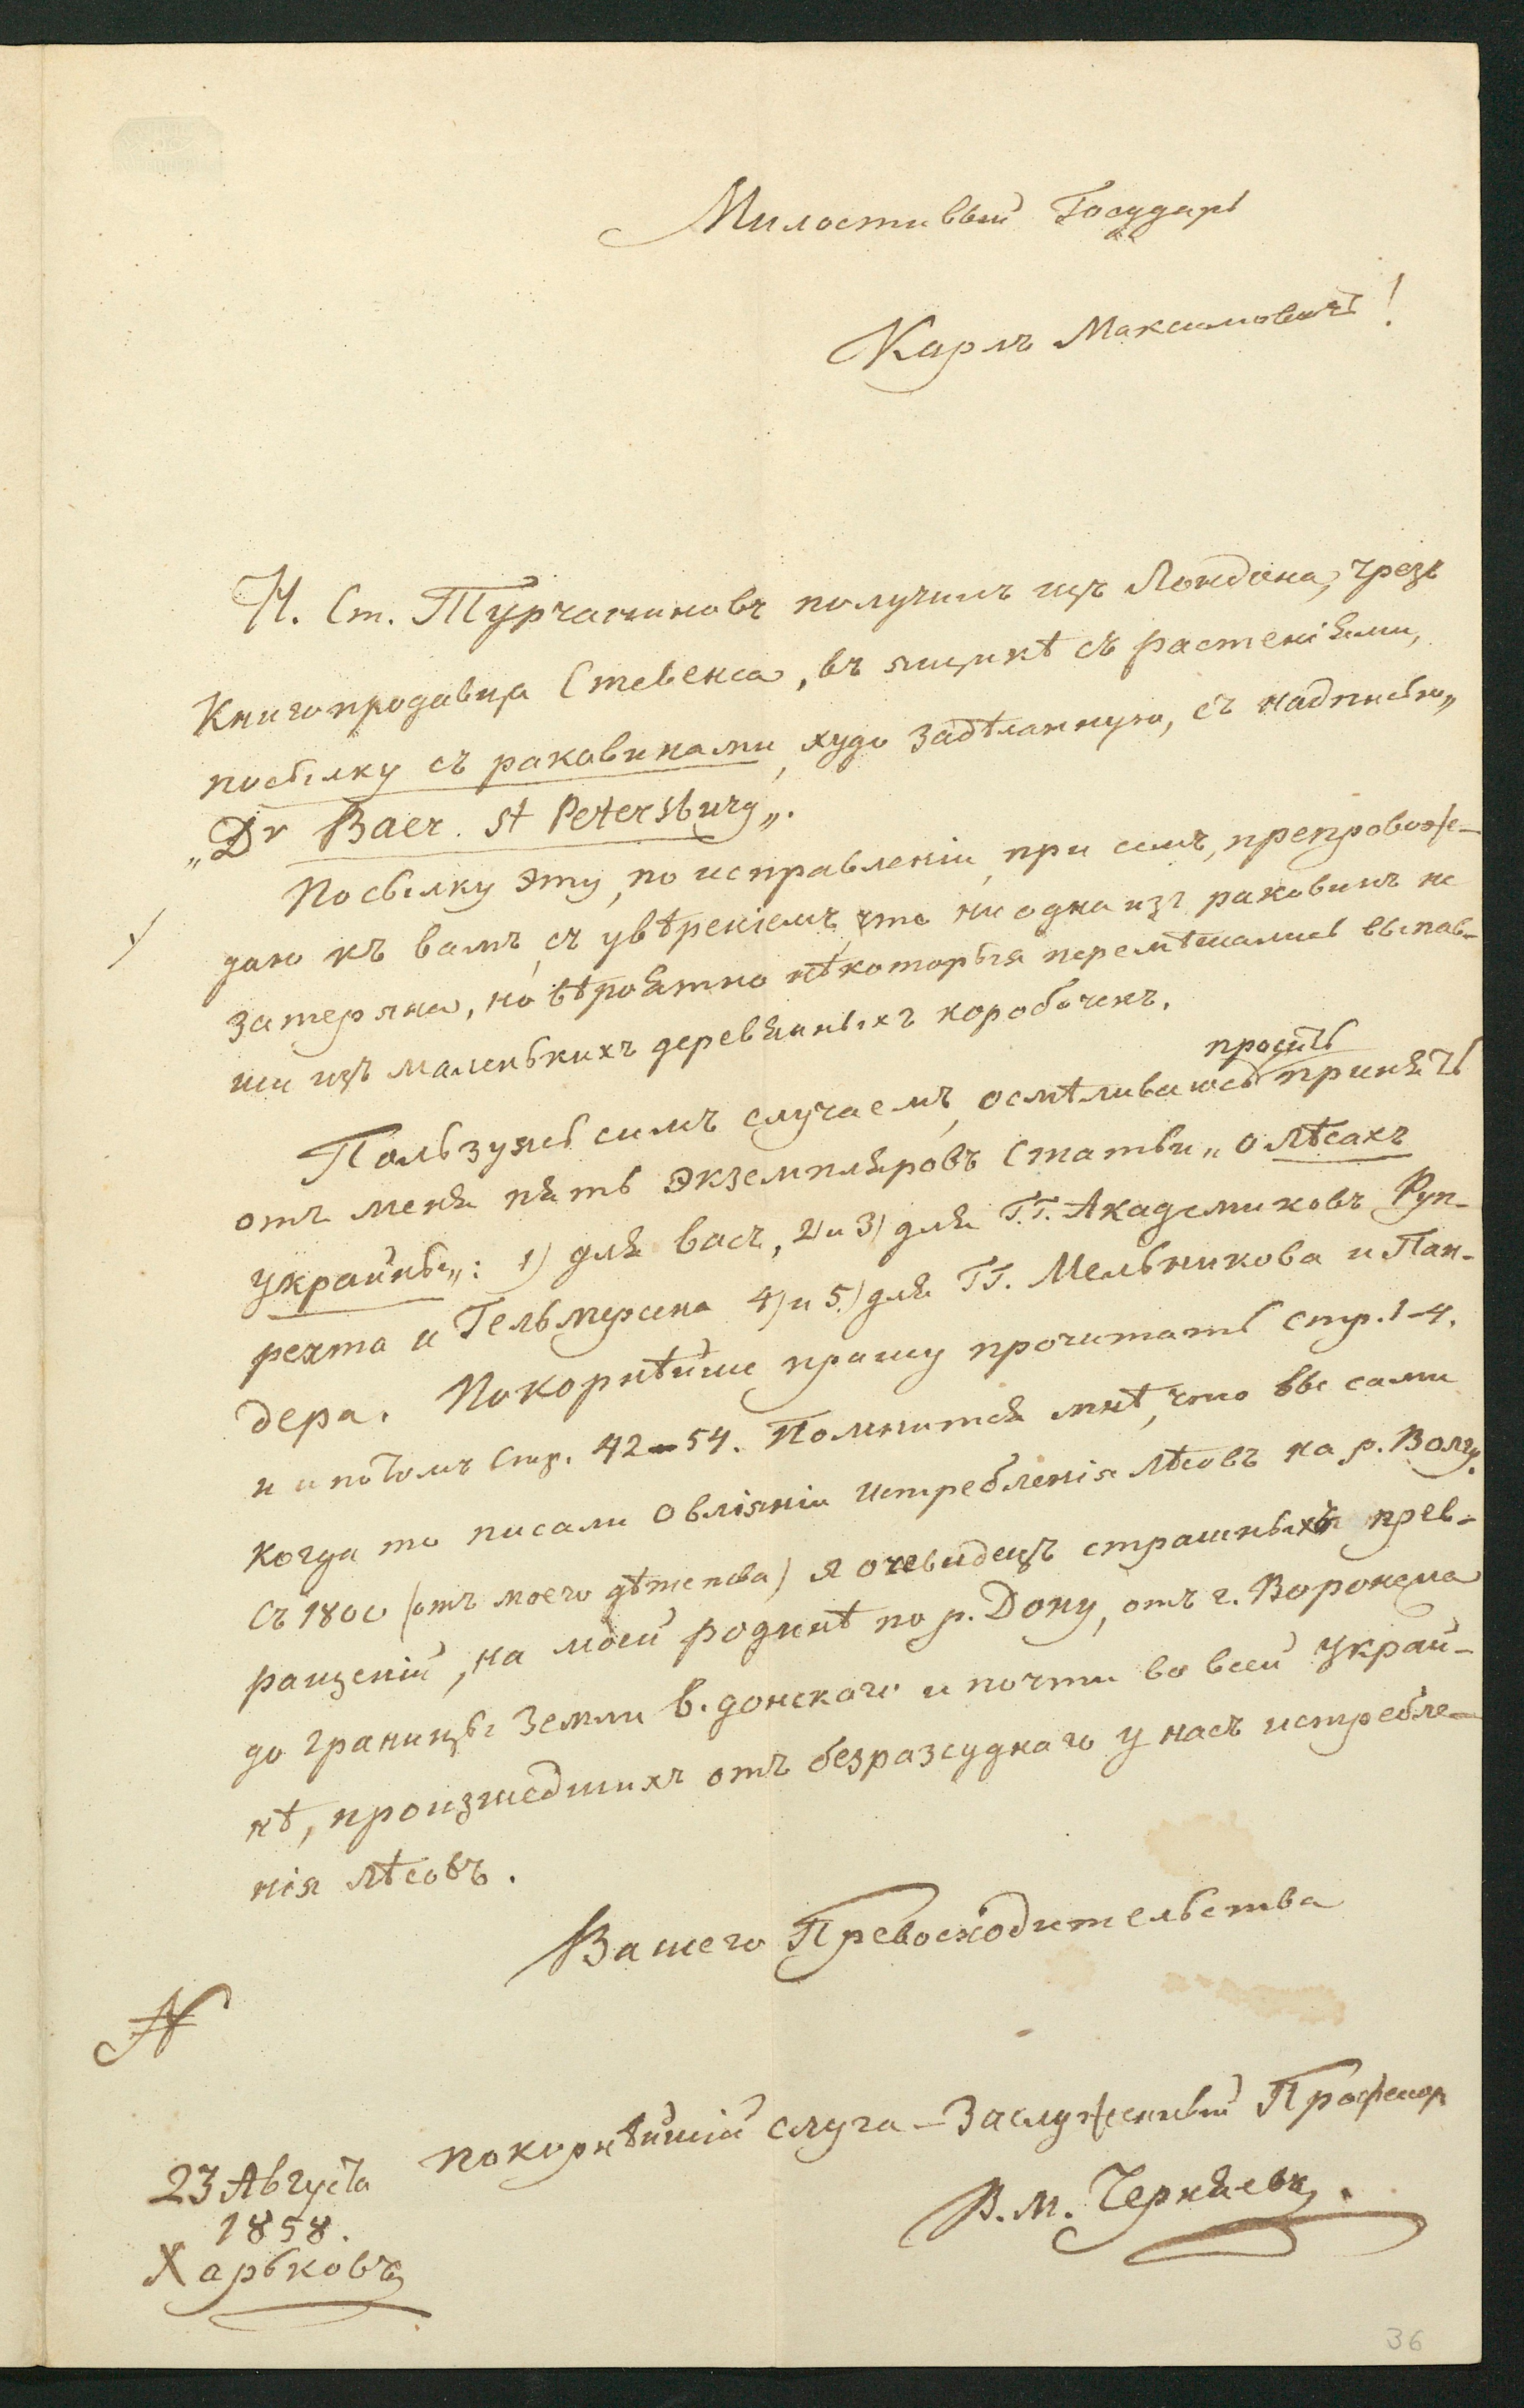 Милостивый Государь
Карлъ Максимовичъ!
Н. Ст. Турчаниновъ получилъ изъ Лондона, чрезъ
Книгопродавца Стевенса, въ ящикѣ съ растеніями,
посылку съ раковинами, худо задѣланную, съ надписью„
„Dr Baer. St Petersburg„.
Посылку эту, по исправленіи, при семъ, препровож-
даю къ вамъ, съ увѣреніемъ, что ни одна изъ раковинъ не
затеряна, но вѣроятно нѣкоторыя перемѣшались выпав-
ши изъ маленькихъ деревянныхъ коробочекъ.
Пользуясь симъ случаемъ, осмѣливаюсь просить принять
отъ меня пять экземпляровъ Статьи „о лѣсахъ
украйны„: 1) для васъ, 2) и 3) для Г.Г. Академиковъ Руп-
рехта и Гельмерсена 4) и 5.) для ГГ. Мельникова и Пан-
дера. Покорнѣйше прошу прочитать стр. 1-4.
и потомъ Стр. 42-54. Помнится мнѣ, что вы сами
когда то писали о вліяніи истребленія лѣсовъ на р. Волгу.
Съ 1800 (отъ моего дѣтства) я очевидецъ страшныхъ прев-
ращеній, на моей родинѣ по р. Дону, отъ г. Воронежа
до границы Земли в. донскаго и почти во всей Украй-
нѣ, произшедшихъ отъ безразсуднаго у насъ истребле-
нія лѣсовъ.
Вашего Превосходительства
покорнѣйшій слуга - Заслуженный Професоръ
В. М. Черняевъ.
23 Августа
1858.
Харьковъ
36